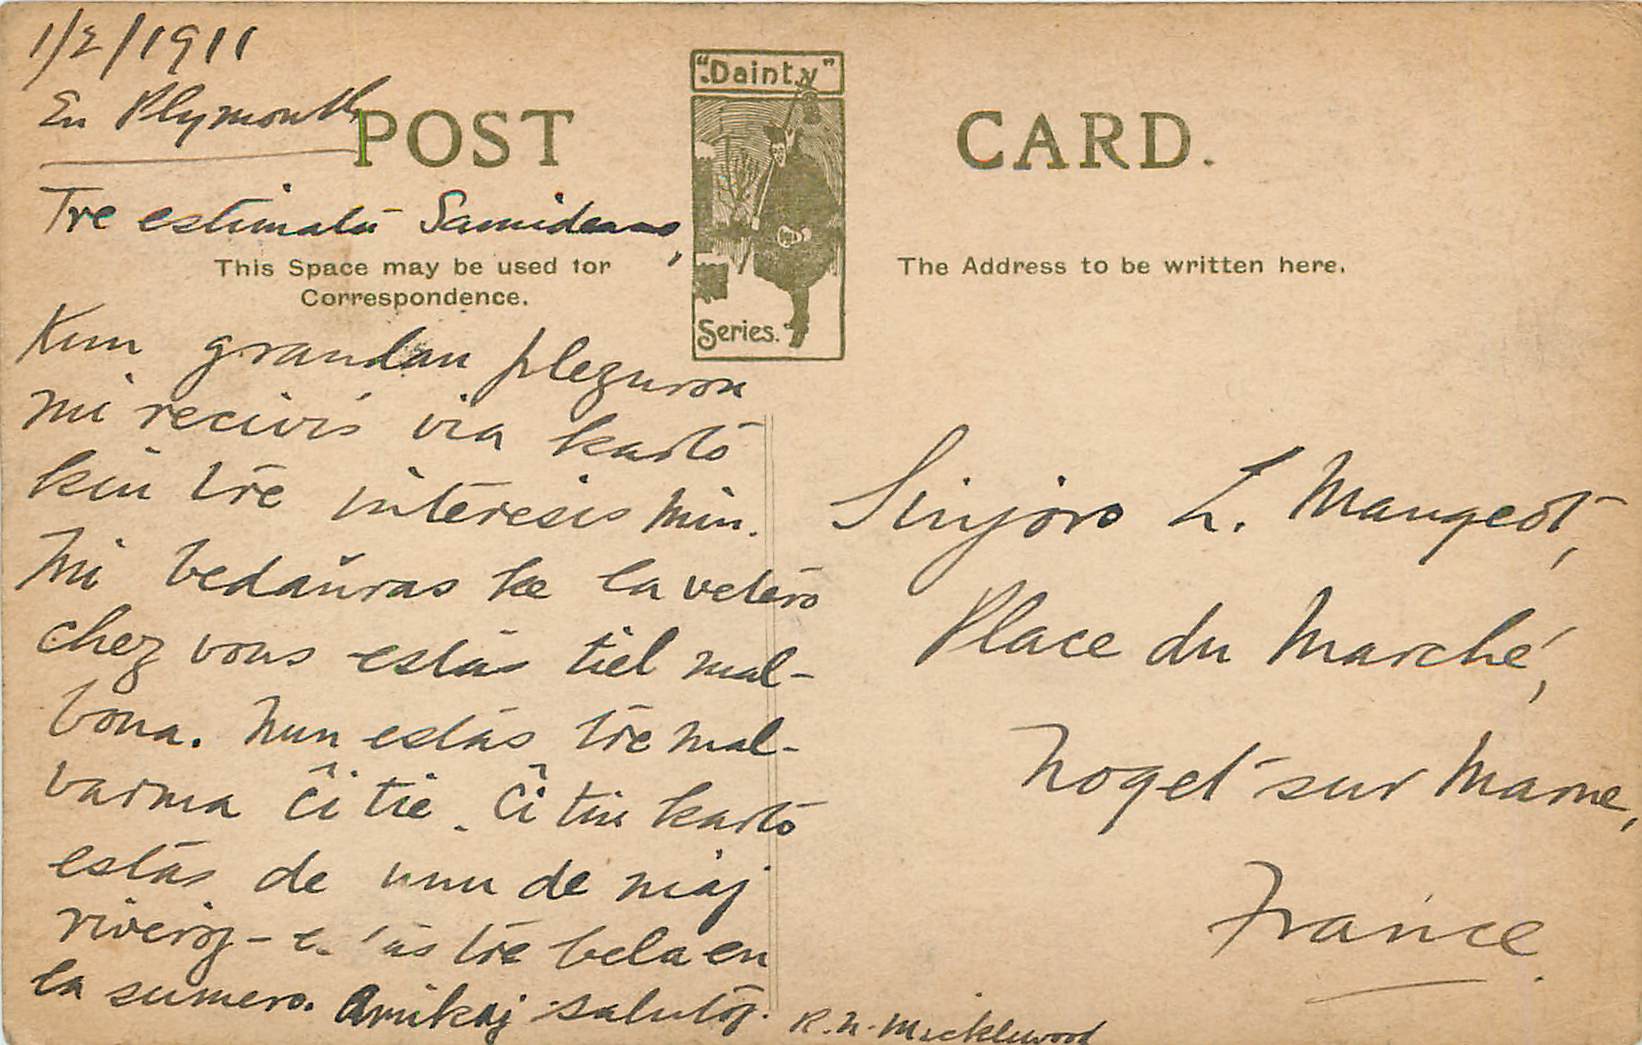 1/2/1911
En Plymouth
POST CARD.
"Dainty"
Series.
Tre estimata Samideano,
This Space may be used for
Correspondence.
The Address to be written here.
Kun grandan plezuron
mi recivis via karto
kiu tre interesis min.
Mi bedaŭras ke la vetero
chez vous estas tiel mal-
bona. Nun estas tre mal-
varma ĉi tie. Ĉi tiu karto
estas de unu de niaj
riveroj - estas tre bela en
la sumero. Amikaj salutoj.
R. N. Micklewood
Sinjoro L. Mangeot,
Place du Marché,
Noget sur Marne,
France.